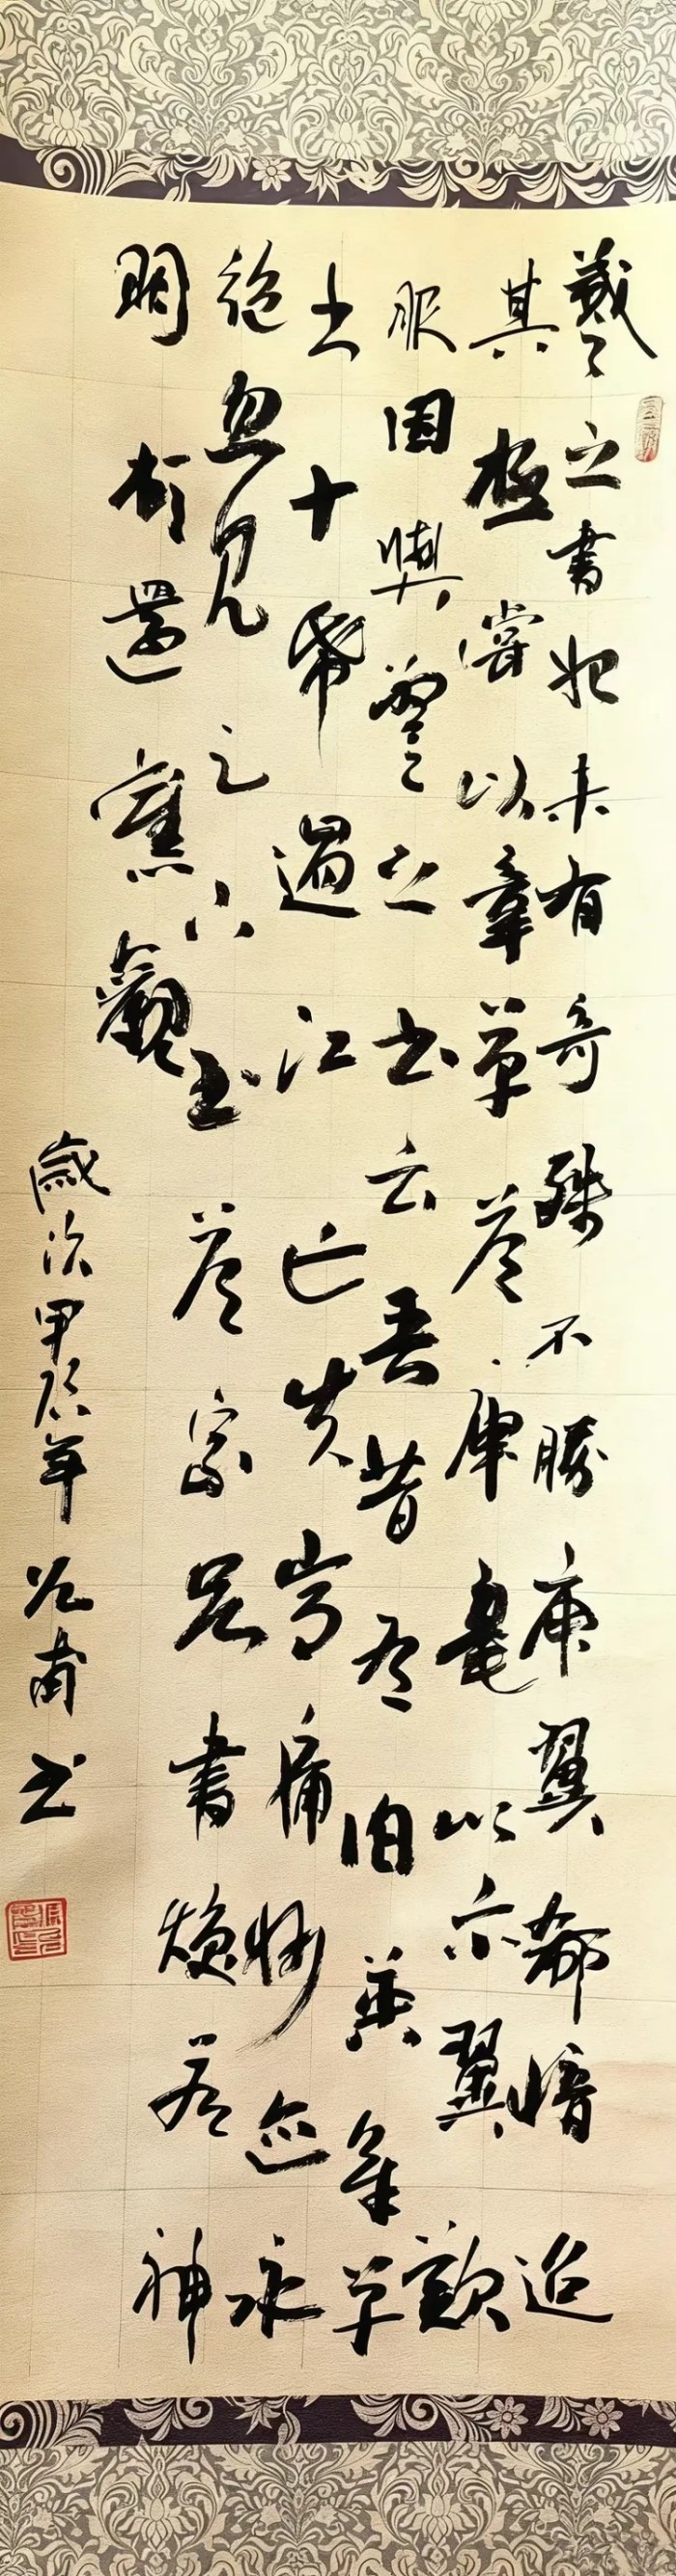 羲之書始未有奇殊不勝庾翼郗愔迨
其極嘗以章草答庾亮以示翼歎
服因與羲之书云吾昔有伯英章草
书十帋過江亡失常痛妙迹永
絕忽見足下书答家兄書煥若神
明頓還舊觀
歲次甲辰年甫书